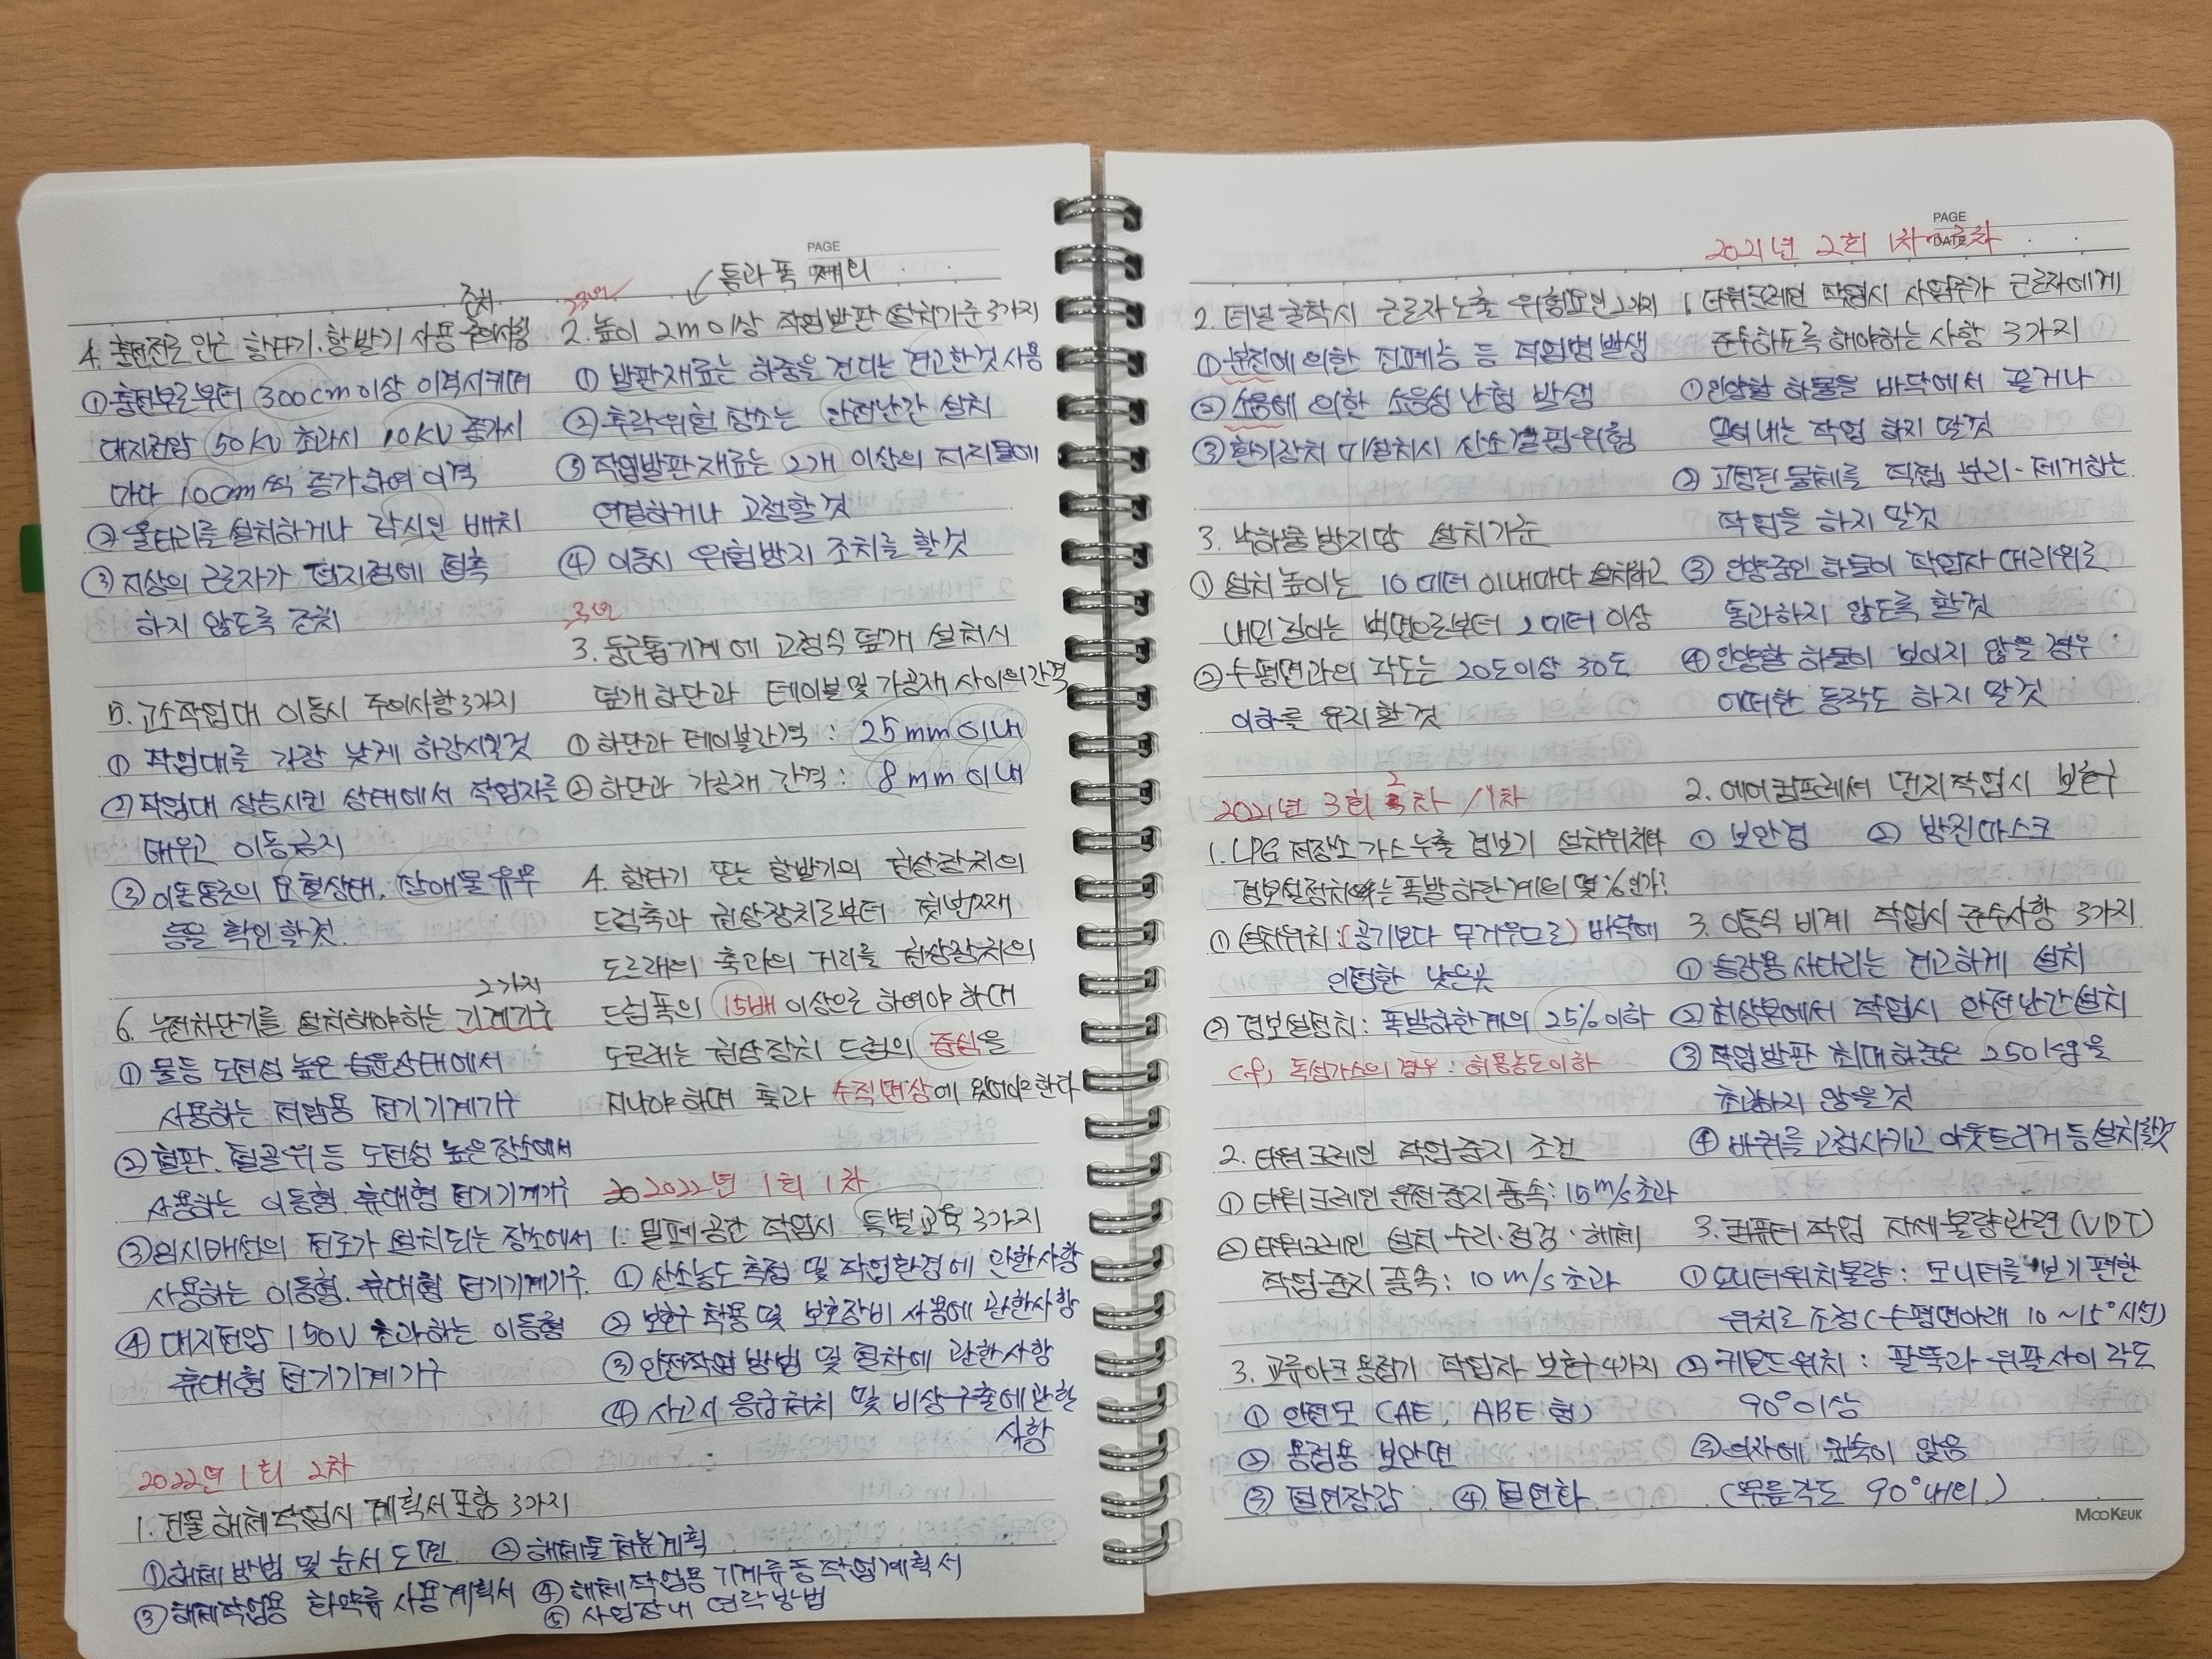 PAGE
조치
4. 충전전로 인근 항타기.항발기 사용 주의사항
① 충전부로부터 300cm 이상 이격시키며
대지전압 50KV 초과시 10KV 증가시
마다 10cm씩 증가하여 이격
② 울타리를 설치하거나 감시인 배치
③ 지상의 근로자가 접지점에 접촉
하지 않도록 조치
5. 고소작업대 이동시 주의사항 3가지
① 작업대를 가장 낮게 하강시킬것
② 작업대 상승시킨 상태에서 작업자를
태우고 이동금지
③ 이동통로의 요철상태, 장애물유무
등을 확인할것.
2가지
6. 누전차단기를 설치해야하는 기계기구
① 물등 도전성 높은 습윤상태에서
사용하는 저압용 전기기계기구
② 철판. 철골위등 도전성 높은장소에서
사용하는 이동형. 휴대형 전기기계기구
③ 임시배선의 전로가 설치되는 장소에서
사용하는 이동형. 휴대형 전기기계기구.
④ 대지전압 150V 초과하는 이동형
휴대형 전기기계기구
2022년 1회 2차
1. 건물해체작업시 계획서포함 3가지
① 해체방법 및 순서도면 ② 해체물처분계획
③ 해체작업용 화약류 사용계획서 ④ 해체작업용 기계류등작업계획서
⑤ 사업장내 연락방법
↙ 통과 폭 제외
2. 높이 2m 이상 작업발판 설치기준 3가지
① 발판재료는 하중을 견디는 견고한것 사용
② 추락위험 장소는 안전난간 설치
③ 작업발판재료는 2개 이상의 지지물에
연결하거나 고정할것
④ 이동시 위험방지 조치를 할것
3. 둥근톱기계에 고정식 덮개 설치시
덮개하단과 테이블및 가공재 사이의간격
① 하단과 테이블간격 : 25mm 이내
② 하단과 가공재 간격 : 8mm 이내
4. 항타기 또는 항발기의 권상장치의
드럼축과 권상장치로부터 첫번째
도르래의 축과의 거리를 권상장치의
드럼폭의 15배 이상으로 하여야 하며
도르래는 권상장치 드럼의 중심을
지나야하며 축과 수직면상에 있어야한다
2022년 1회 1차
1. 밀폐공간 작업시 특별교육 3가지
① 산소농도측정 및 작업환경에 관한사항
② 보호구 착용 및 보호장비 사용에 관한사항
③ 안전작업방법 및 절차에 관한사항
④ 사고시 응급처치 및 비상구출에관한
사항
PAGE
DATE
2021년 2회 1차
2. 터널굴착시 근로자노출 위험요인2가지
① 분진에 의한 진폐증 등 직업병 발생
② 소음에 의한 소음성 난청 발생
③ 환기장치 미설치시 산소결핍위험
3. 낙하물방지망 설치기준
① 설치높이는 10미터 이내마다 설치하고
내민길이는 벽면으로부터 2미터 이상
② 수평면과의 각도는 20도이상 30도
이하를 유지할것
2021년 3회 2차 /1차
1. LPG 저장소 가스누출 경보기 설치위치와
경보설정치는폭발하한계의 몇%인가?
① 설치위치:(공기보다 무거우므로) 바닥에
인접한 낮은곳
② 경보설정치: 폭발하한계의 25%이하
(cf) 독성가스의 경우 : 허용농도이하
2. 타워크레인 작업중지 조건
① 타워크레인 운전중지풍속: 15m/s초과
② 타워크레인 설치·수리·점검·해체
작업중지 풍속: 10m/s초과
3. 교류아크용접기 작업자 보호구4가지
① 안전모 (AE, ABE형)
② 용접용 보안면
③ 절연장갑 ④ 절연화.
1. 타워크레인 작업시 사업주가 근로자에게
준수하도록 해야하는 사항 3가지
① 인양할 하물을 바닥에서 끌거나
밀어내는 작업 하지 말것
② 고정된물체를 직접 분리·제거하는
작업을 하지 말것
③ 인양중인 하물이 작업자 머리위로
통과하지 않도록 할것
④ 인양할 하물이 보이지 않을 경우
어떠한 동작도 하지 말것
2. 에어컴프레서 먼지작업시 보호구
① 보안경 ② 방진마스크
3. 이동식 비계 작업시 준수사항 3가지
① 승강용사다리는 견고하게 설치
② 최상부에서 작업시 안전난간설치
③ 작업발판 최대하중은 250kg을
초과하지 않을것
④ 바퀴를 고정시키고 아웃트리거등설치할것
3. 컴퓨터 작업 자세불량관련(VDT)
① 모니터위치불량 : 모니터를 보기 편한
위치로 조정(수평면아래 10~15°시선)
② 키보드위치 : 팔뚝과 위팔사이 각도
90°이상
③ 의자에 깊숙이 앉음
(무릎각도 90°내외.)
MOOKEUK